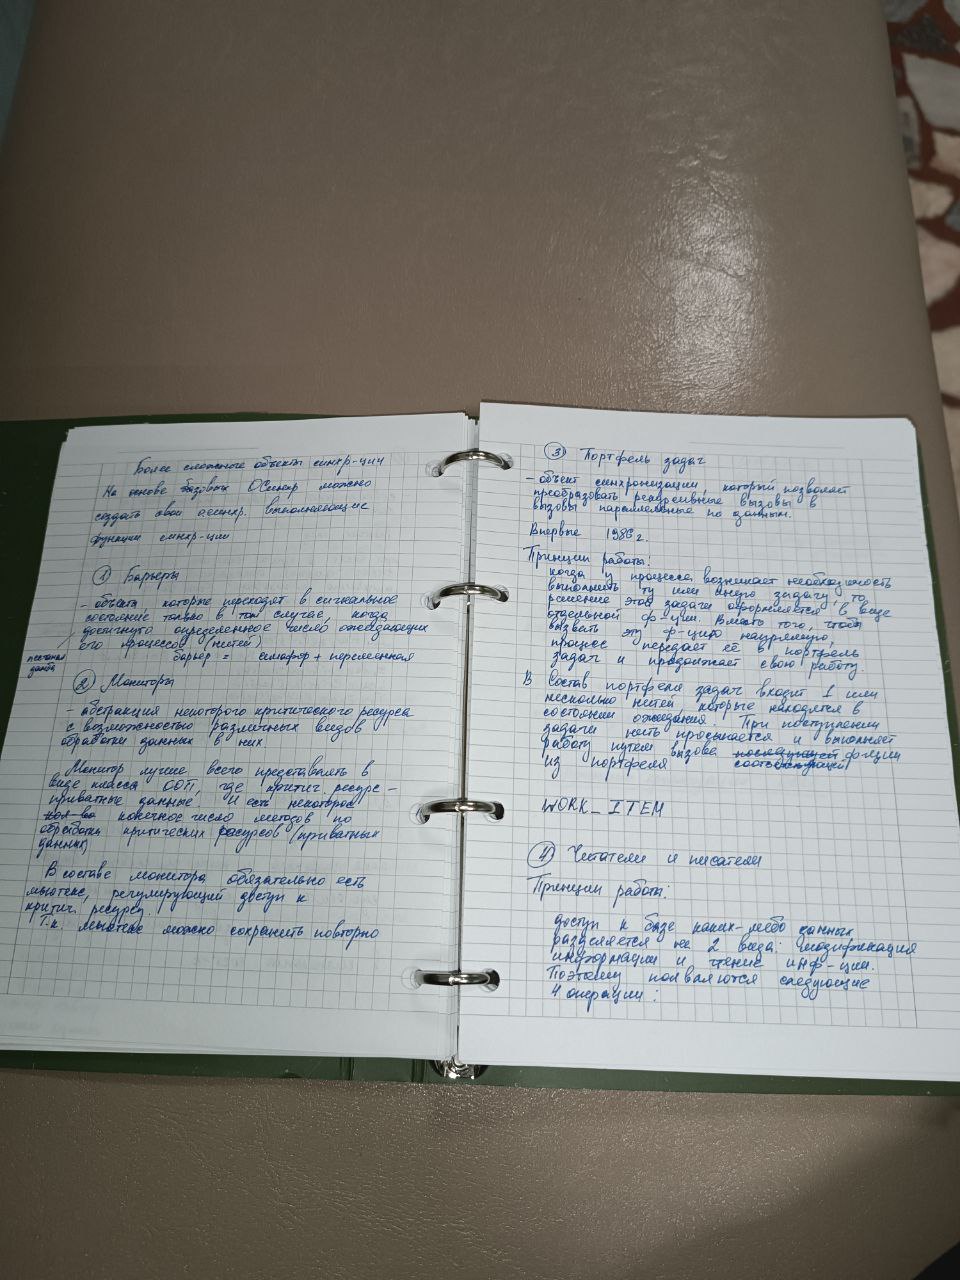 Более сложные объекты синхр-ции
На основе базовых ОСинхр можно
создать свои выполняющие
функции синхр-ции
① Барьеры
- объекты, которые переходят в сигнальное
состояние только в том случае, когда
достигнуто определенное число ожидающих
его процессов (нитей)
барьер = семафор + переменная
② Мониторы
- абстракция некоторого критического ресурса
с возможностью различных видов
обработки данных в них
Монитор лучше всего представлять в
виде класса ООП, где критич. ресурс -
приватные данные. И есть некоторое
кол-во конечное число методов по
обработки критических ресурсов (приватных
данных)
В составе монитора обязательно есть
мьютекс, регулирующий доступ к
критич. ресурсу.
Т.к. мьютекс можно сохранить повторно
③ Портфель задач
- объект синхронизации, который позволяет
преобразовать рекурсивные вызовы в
вызовы параллельные по данным.
Впервые 1986г.
Принципи работы:
когда у процесса возникает необходимость
выполнить ту или иную задачу, то
решение этой задачи оформляется в виде
отдельной ф-ции. Вместо того, чтобы
вызвать эту ф-цию напрямую,
процесс передает её в портфель
задач и продолжает свою работу
В Состав портфеля задач входит 1 или
несколько нитей, которые находятся в
состоянии ожидания. При поступлении
задачи нить просыпается и выполняет
работу путем вызова функции
из портфеля
WORK_ITEM
④ Читатели и писатели
Принципи работы:
доступ к базе каких-либо данных
разделяется на 2 вида: модификация
информации и чтение инф-ции.
Поэтому появляются следующие
4 операции: